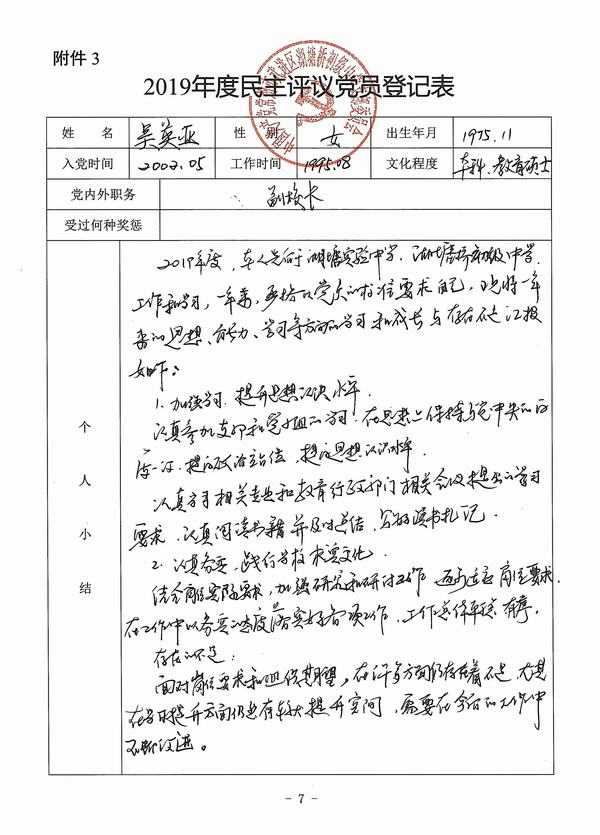 附件 3
2019年度民主评议党员登记表
姓 名 吴英亚 性 别 女 出生年月 1975.11
入党时间 2002.05 工作时间 1995.08 文化程度 本科、教育硕士
党内外职务 副校长
受过何种奖惩
个人小结
2019年度，本人先后于湖塘实验中学、湖塘桥初级中学
工作和学习，一年来，严格以党员的标准要求自己，现将一年
来的思想、能力、学习等方面的学习和成长与存在不足汇报
如下：
1. 加强学习，提升思想认识水平
认真参加支部和党小组的学习，在思想上保持与党中央的高
度一致，提高政治站位，提高思想认识水平。
认真学习相关专业和教育行政部门相关会议提出的学习
要求，认真阅读书籍并及时总结，写好读书札记。
2. 认真务实，践行学校求实文化
结合岗位实际要求，加强研究和研讨工作，适应岗位要求，
在工作中以务实的态度落实好各项工作，工作总体平稳有序。
存在的不足：
面对岗位要求和期望，在许多方面仍存在着不足，尤其
在学习提升方面仍有较大提升空间，需要在今后的工作中
不断改进。
- 7 -